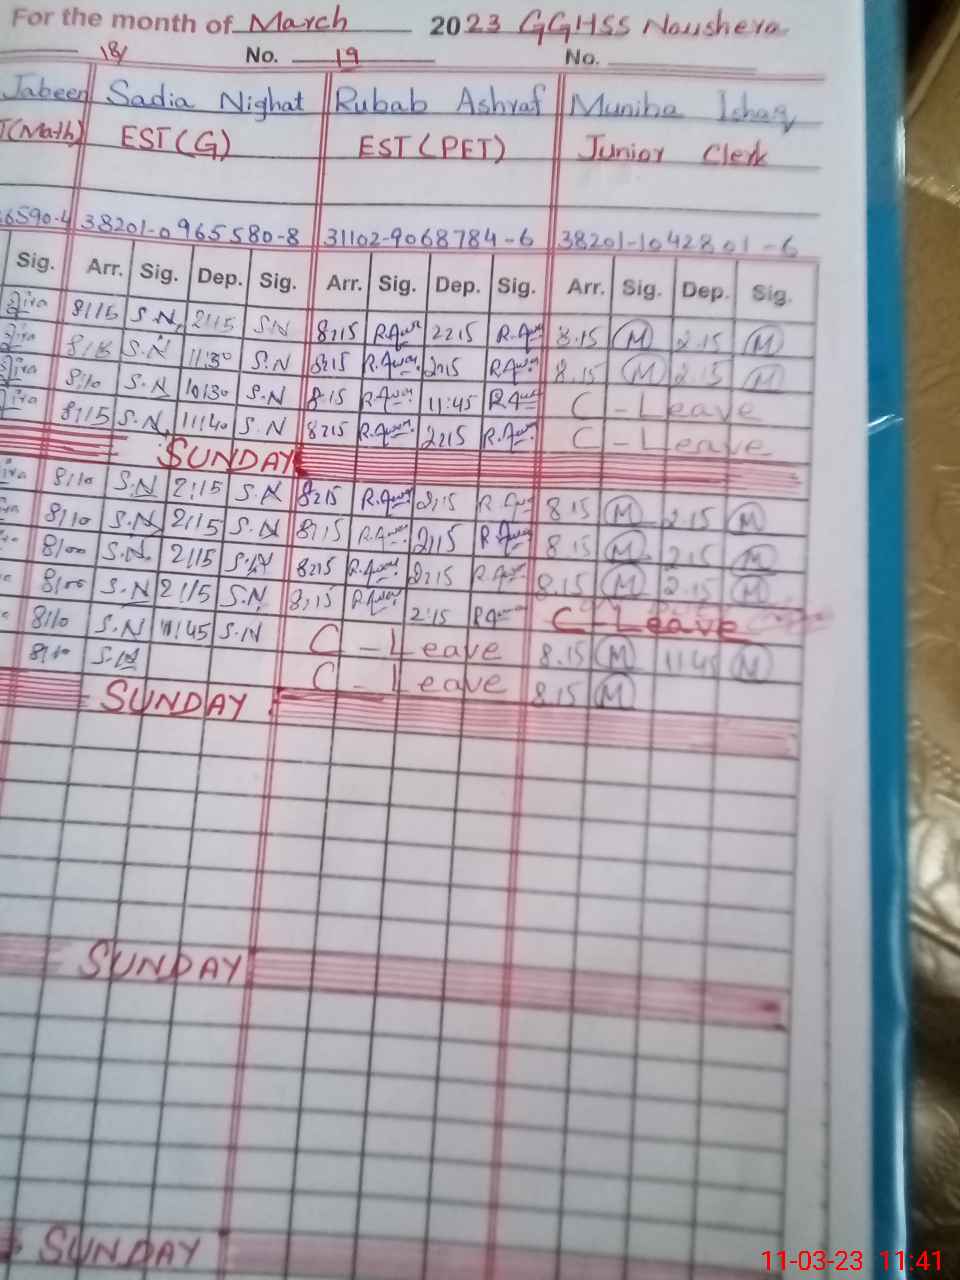 For the month of March 2023 GGHSS Noushera
18/ No. 19 No.
Jabeen Sadia Nighat Rubab Ashraf Muniba Ishaq
(Math) EST (G) EST (PET) Junior Clerk
6590-4 38201-0965580-8 31102-9068784-6 38201-1042801-6
Sig. Arr. Sig. Dep. Sig. Arr. Sig. Dep. Sig. Arr. Sig. Dep. Sig.
8:15 S.N 2:15 S.N 8:15 2:15 8.15 M 2.15 M
8:15 S.N 11:30 S.N 8:15 2:15 8.15 M 2.15 M
8:10 S.N 10:30 S.N 8:15 11:45 C-Leave
8:15 S.N 11:40 S.N 8:15 2:15 C-Leave
SUNDAY
8:10 S.N 2:15 S.N 8:15 2:15 8.15 M 2.15 M
8:10 S.N 2:15 S.N 8:15 2:15 8.15 M 2.15 M
8:00 S.N. 2:15 S.N 8:15 2:15 8.15 M 2.15 M
8:00 S.N 2:15 S.N 8:15 2:15 C-Leave
8:10 S.N 11:45 S.N C-Leave 8.15 M 11:45 M
8:10 S.N C-Leave 8.15 M
SUNDAY
SUNDAY
SUNDAY
11-03-23 11:41